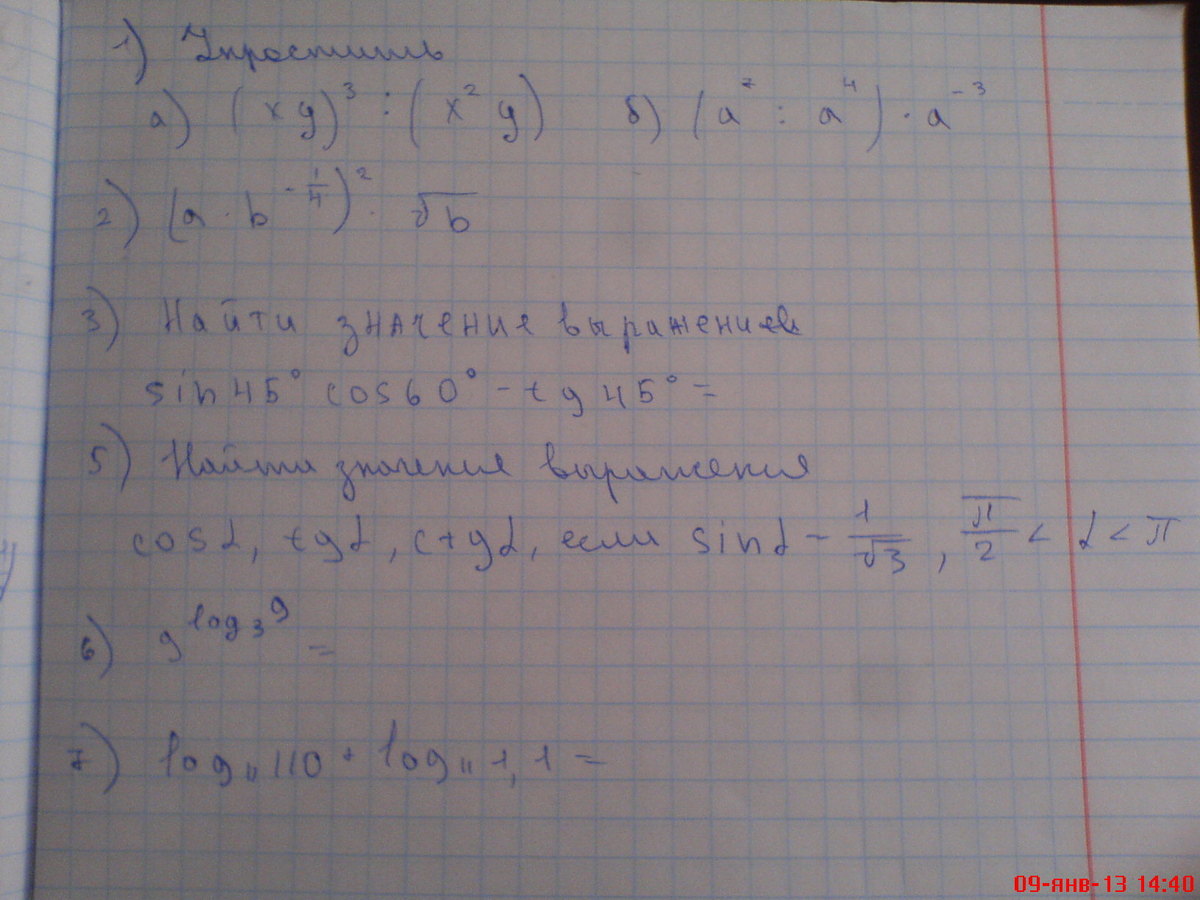 1) Упростить
а) (xy)³ : (x² y) б) (a⁷ : a⁴) · a⁻³
2) (a · b^(-1/4))² · √b
3) Найти значение выражения
sin 45° cos 60° - tg 45° =
5) Найти значения выражения
cosα, tgα, ctgα, если sinα - 1/√3, π/2 < α < π
6) 9^(log₃ 9) =
7) log₁₁ 110 + log₁₁ 1,1 =
09-янв-13 14:40